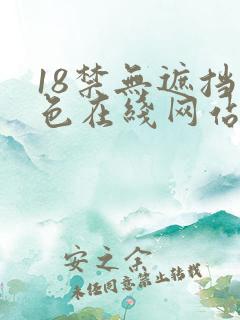 18禁無遮挡
色在綫网佔
安之余
未经同意禁止转载